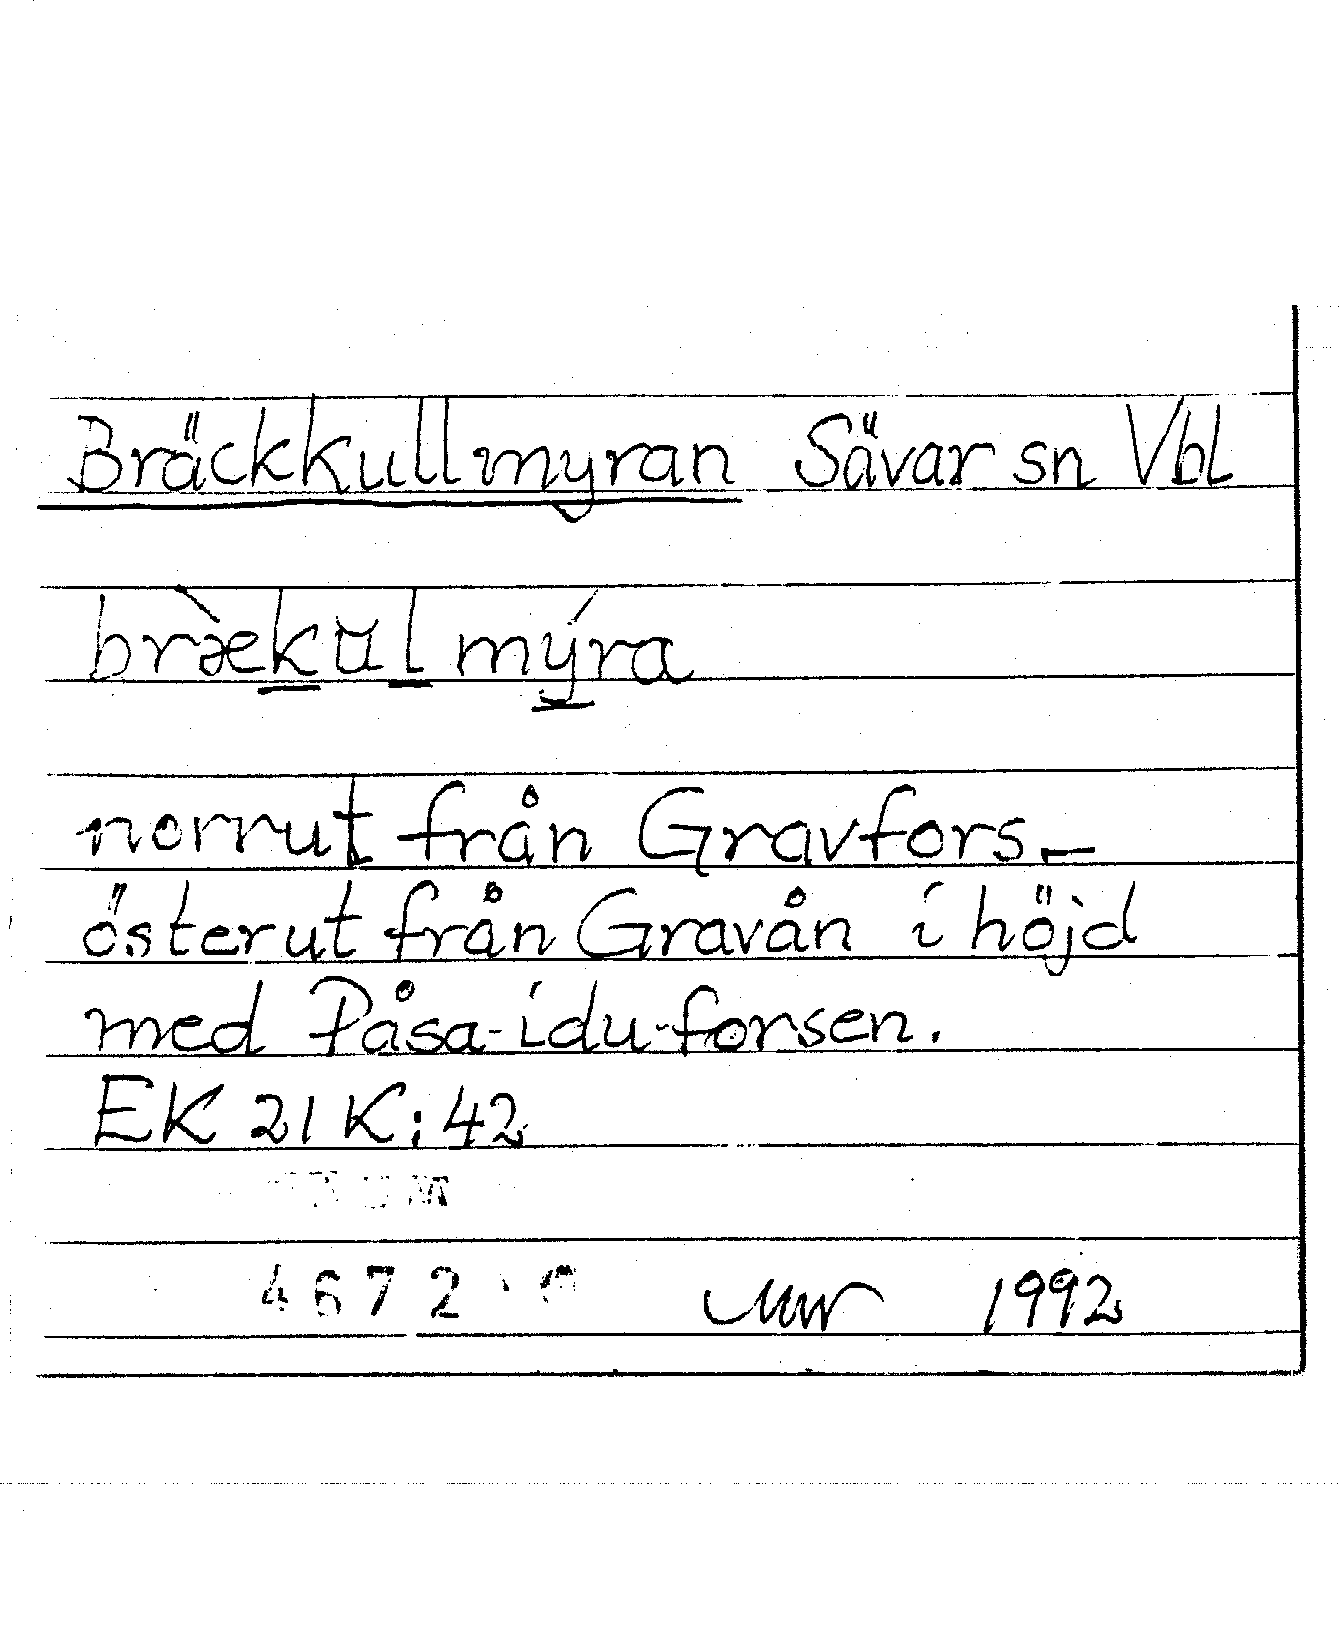 Bräckkullmyran Sävar sn Vbl
bræ̀kŭl mýra
norrut från Gravfors –
österut från Gravån i höjd
med Påsa-idu-forsen.
EK 21 K:42
4672
1992